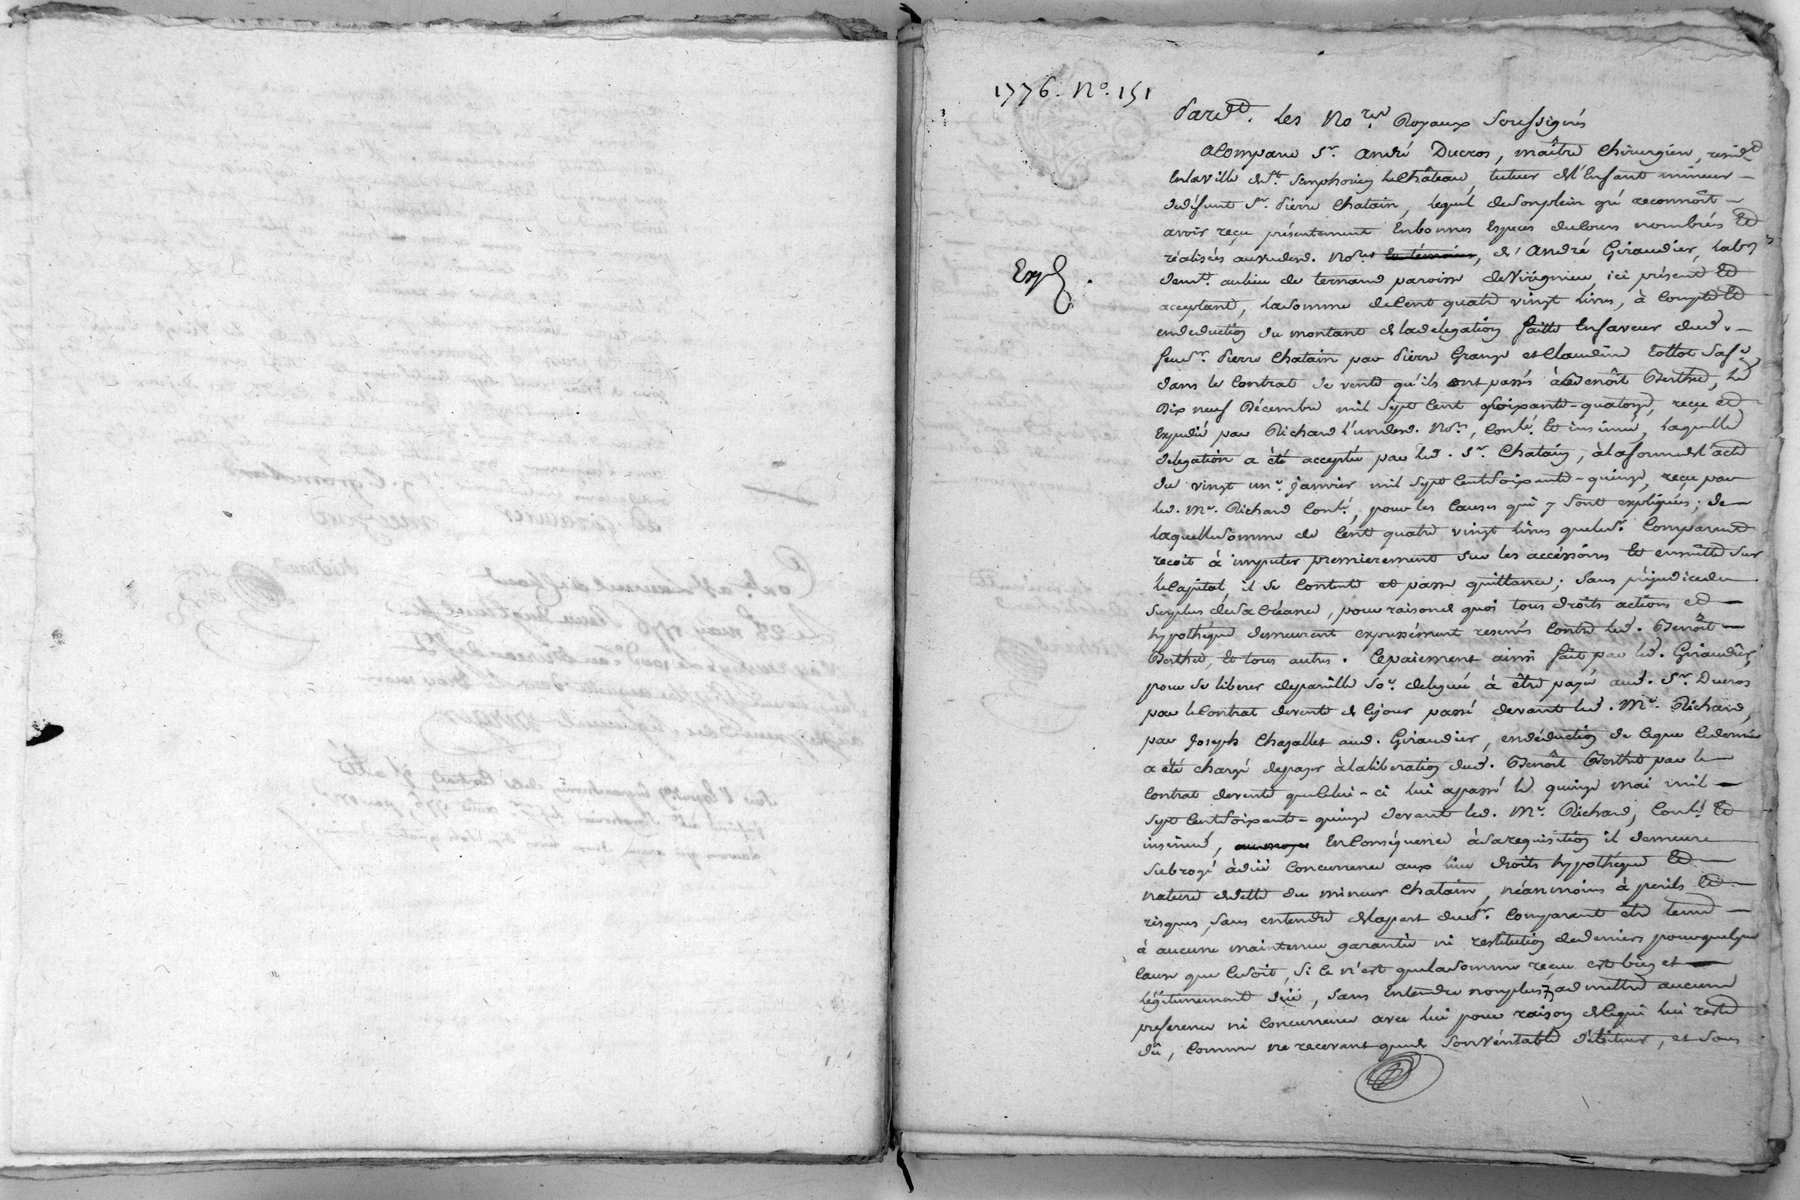 1776. No. 151
Pard.t les No.res Royaux Soussignés
a Comparu Sr. André Ducros, maître Chirurgien, resid.t
en la ville de St. Simphorien le Château, tuteur de l'Enfant mineur
de défunt Sr. Pierre Chatain, lequel de son plein gré reconnoît
avoir reçu présentement En bonnes Especes du Cours nombrées et
réalisées au vu desd. No.res, d'André Giraudier, lab.r
dem.t au lieu de ternand paroisse de Virignieu, ici présent et
Exp.
acceptant, la somme de Cent quatre vingt livres, à Compte et
en deduction du montant de la delegation faitte En faveur dud.
feu Sr. Pierre Chatain par Pierre Grange et Claudine tottot Sa fe
dans le Contrat de vente qu'ils ont passés à Benoît Berthet, le
Dix neuf Décembre mil Sept Cent Soixante-quatorze, reçu et
Expedié par Richard l'un desd. No.res, Conlé. et insinué, laquelle
delegation a été acceptée par led. Sr. Chatain, à la forme de l'acte
du vingt un janvier mil Sept Cent Soixante-quinze, reçu par
led. Me. Richard Conlé, pour les Causes qui y Sont expliquées; de
laquelle Somme de Cent quatre vingt livres que led. Sr. Comparant
recoit à imputer premierement Sur les accéssoires et ensuitte Sur
le Capital, il Se Contente et passe quittance; Sans préjudice du
Surplus de Sa Créance, pour raison de quoi tous droits actions et
hypothéque demeurent expressément reservés Contre led. Benoît
Berthet, et tous autres. Le paiement ainsi fait par led. Giraudier
pour Se liberer de pareille So.e deleguée à être payée aud. Sr. Ducros
par le Contrat de vente de Ce jour passé devant led. Me. Richard,
par Joseph Chazallet aud. Giraudier, en déduction de Ce que Ce dernier
a été chargé de payer à la liberation dud. Benoît Berthet par le
Contrat de vente que Celui-ci lui a passé le quinze mai mil
Sept Cent Soixante-quinze devant led. Me. Richard, Conlé et
insinué, En Conséquence à Sa requisition il demeure
Subrogé à düe Concurrence aux lieu droits hypothéque et
nature de dette du mineur Chatain, néanmoins à perils et
risques, Sans entendre de la part dud. Sr. Comparant être tenu
à aucune maintenue garantie ni restitution de deniers pour quelque
Cause que Ce Soit, Si Ce n'est que la Somme reçue est bien et
légitimement düe, Sans Entendre non plus admettre aucune
preference ni Concurrence avec lui pour raison de Ce qui lui reste
dû, Comme ne recevant que de Son véritable débiteur, et Sous